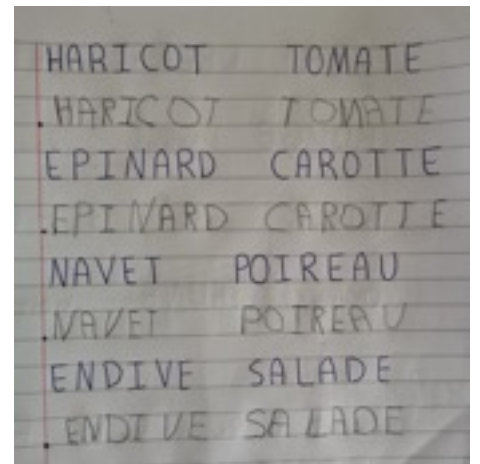 HARICOT TOMATE
HARICOT TOMATE
EPINARD CAROTTE
EPINARD CAROTTE
NAVET POIREAU
NAVET POIREAU
ENDIVE SALADE
ENDIVE SALADE